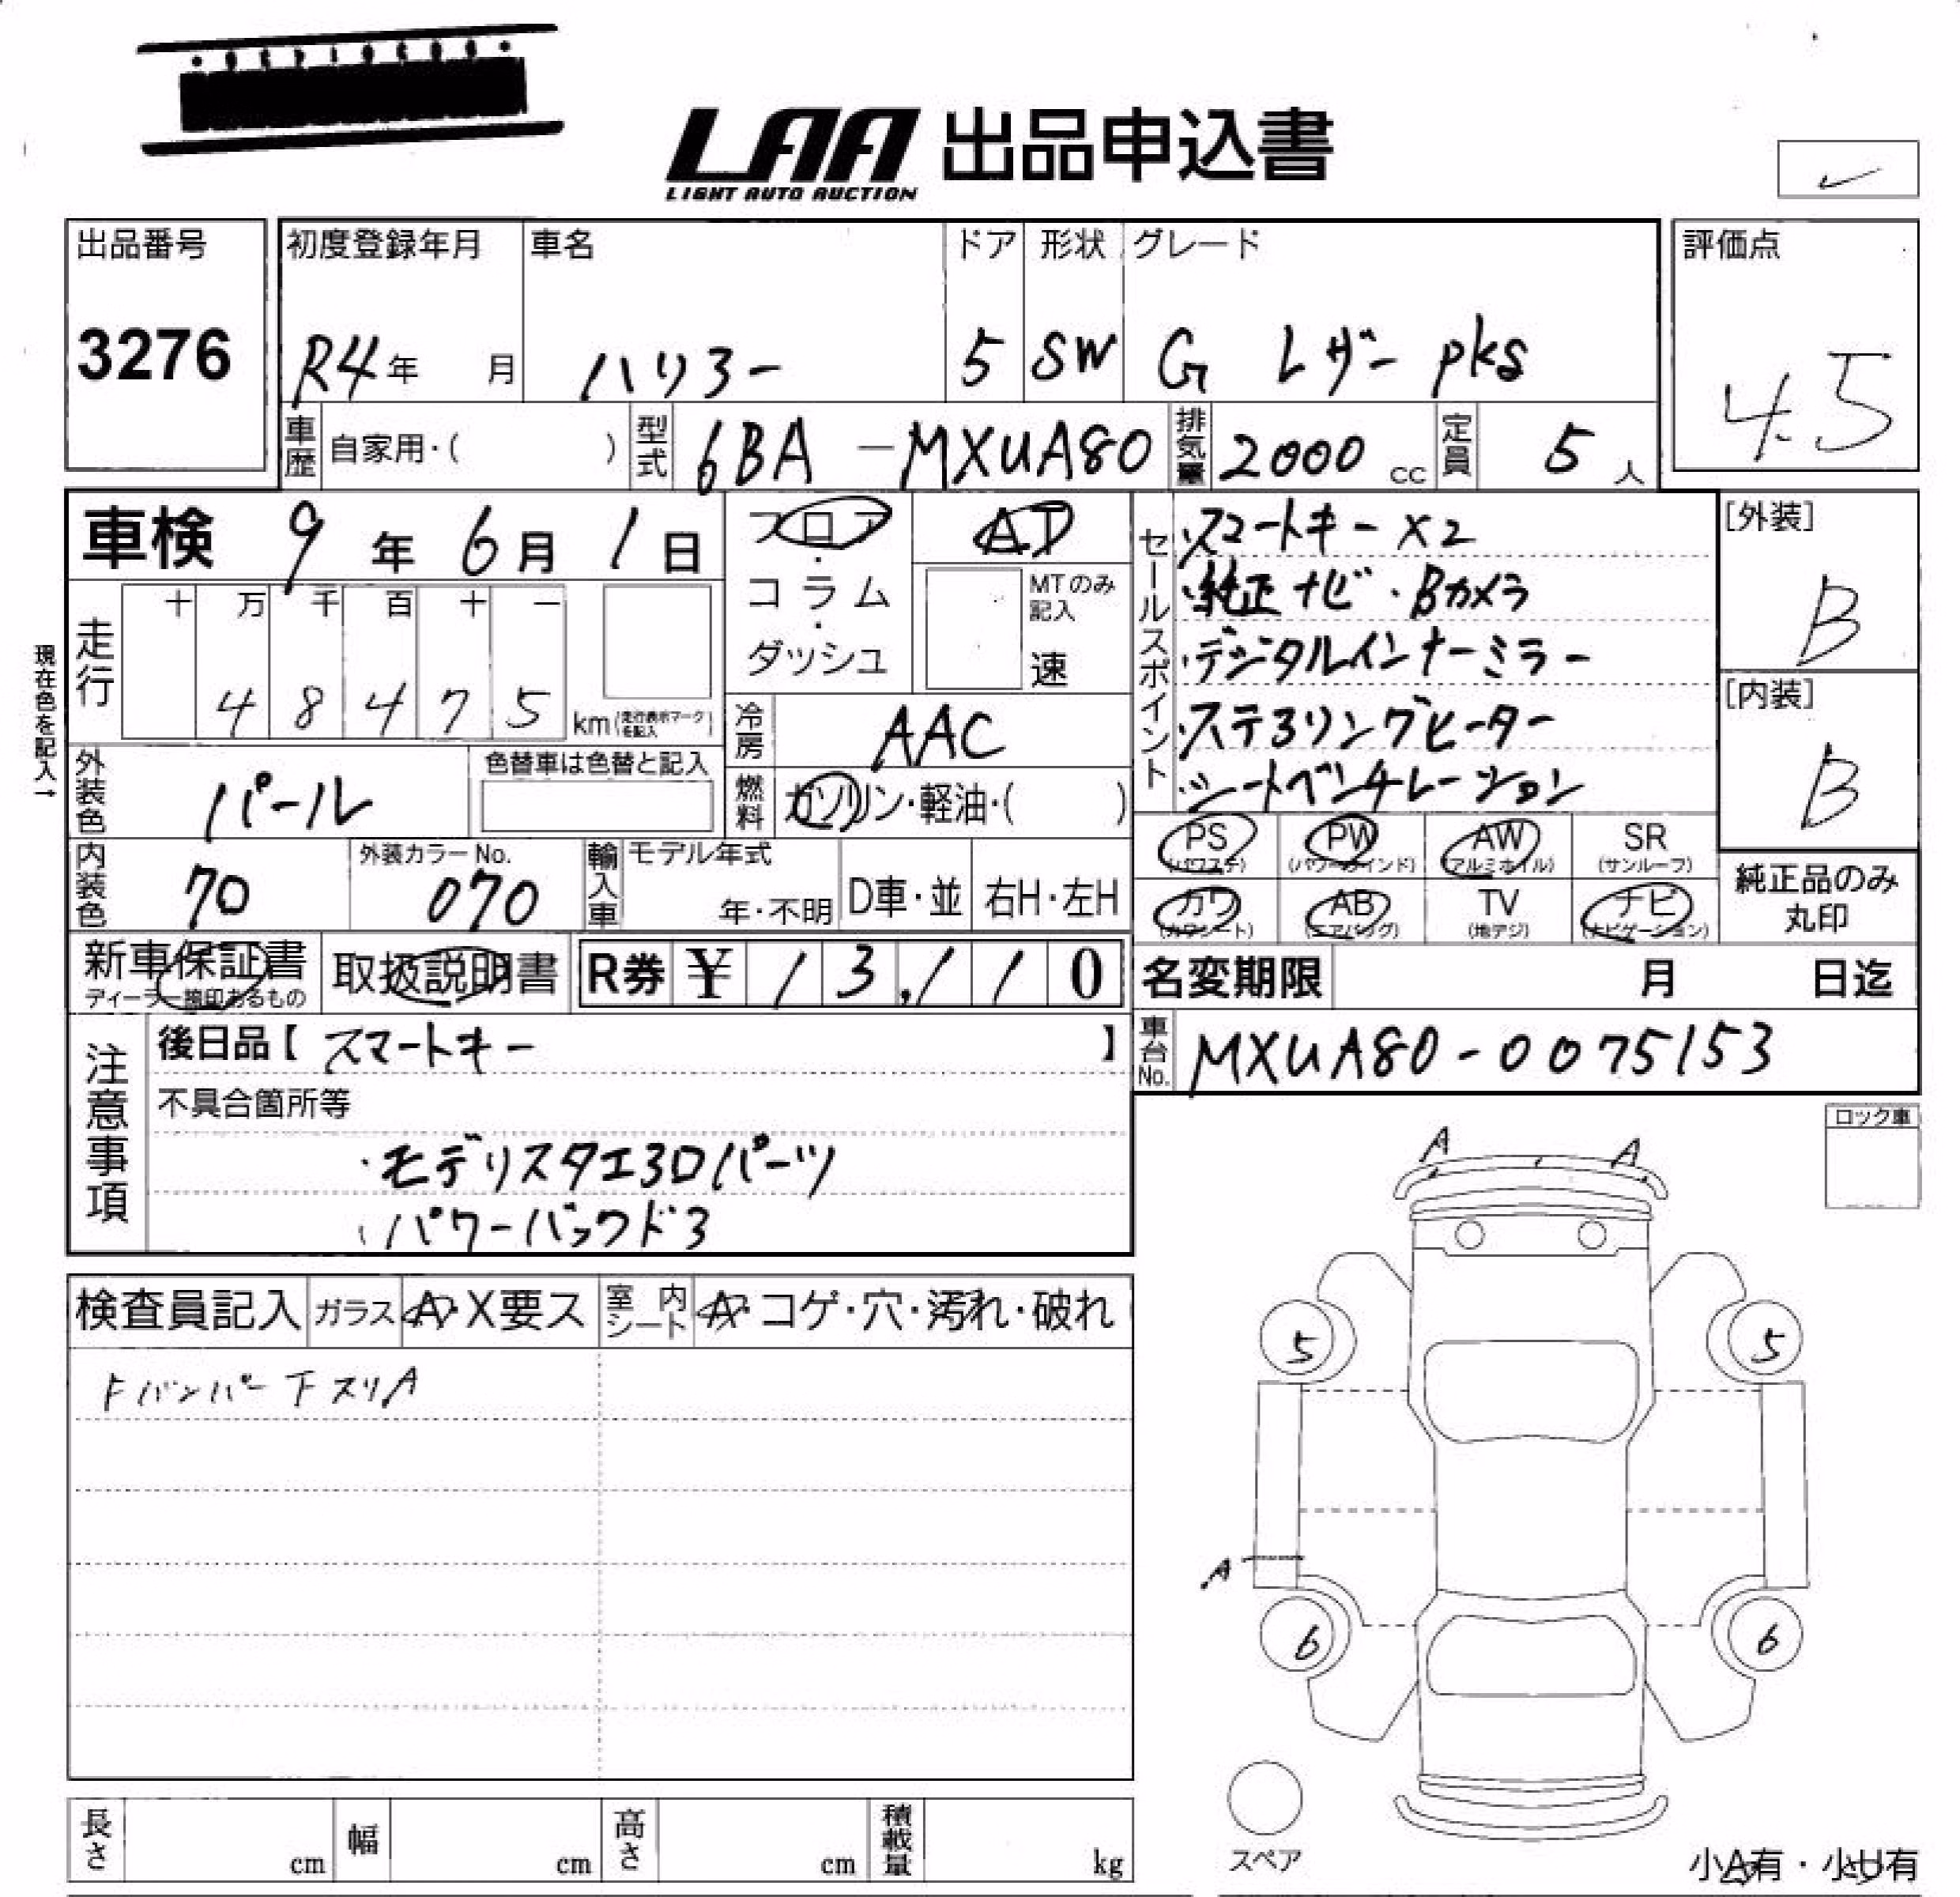 LAA 出品申込書
LIGHT AUTO AUCTION
出品番号
3276
初度登録年月
R4年 月
車名
ハリヤー
ドア
5
形状
SW
グレード
G レザー pkg
評価点
4.5
車歴 自家用・( )
型式 6BA-MXUA80
排気量 2000 cc
定員 5 人
車検 9年 6月 1日
フロア・コラム・ダッシュ
AT
MTのみ記入
速
走行
十 万 千 百 十 一
4 8 4 7 5
km (走行表示マークを記入)
現在色を記入→
冷房 AAC
燃料 ガソリン・軽油・( )
外装色 パール
色替車は色替と記入
内装色 70
外装カラーNo.
070
輸入車
モデル年式
年・不明
D車・並
右H・左H
セールスポイント
・スマートキー×2
・純正ナビ・Bカメラ
・デジタルインナーミラー
・ステヨリングヒーター
・シートベンチレーション
[外装]
B
[内装]
B
PS (パワステ)
PW (パワーウインド)
AW (アルミホイル)
SR (サンルーフ)
カワ (カワシート)
AB (エアバッグ)
TV (地デジ)
ナビ (ナビゲーション)
純正品のみ丸印
新車保証書
ディーラー捺印あるもの
取扱説明書
R券 ¥ 13,110
名変期限 月 日迄
車台No. MXUA80-0075153
注意事項
後日品【 スマートキー 】
不具合箇所等
・モデリスタエヨロパーツ
・パワーバックドヨ
ロック車
A A
検査員記入
ガラス A・X要ス
室内シート A・コゲ・穴・汚れ・破れ
Fバンパー下スリA
5 5
A
6 6
スペア
小A有・小U有
長さ cm
幅 cm
高さ cm
積載量 kg